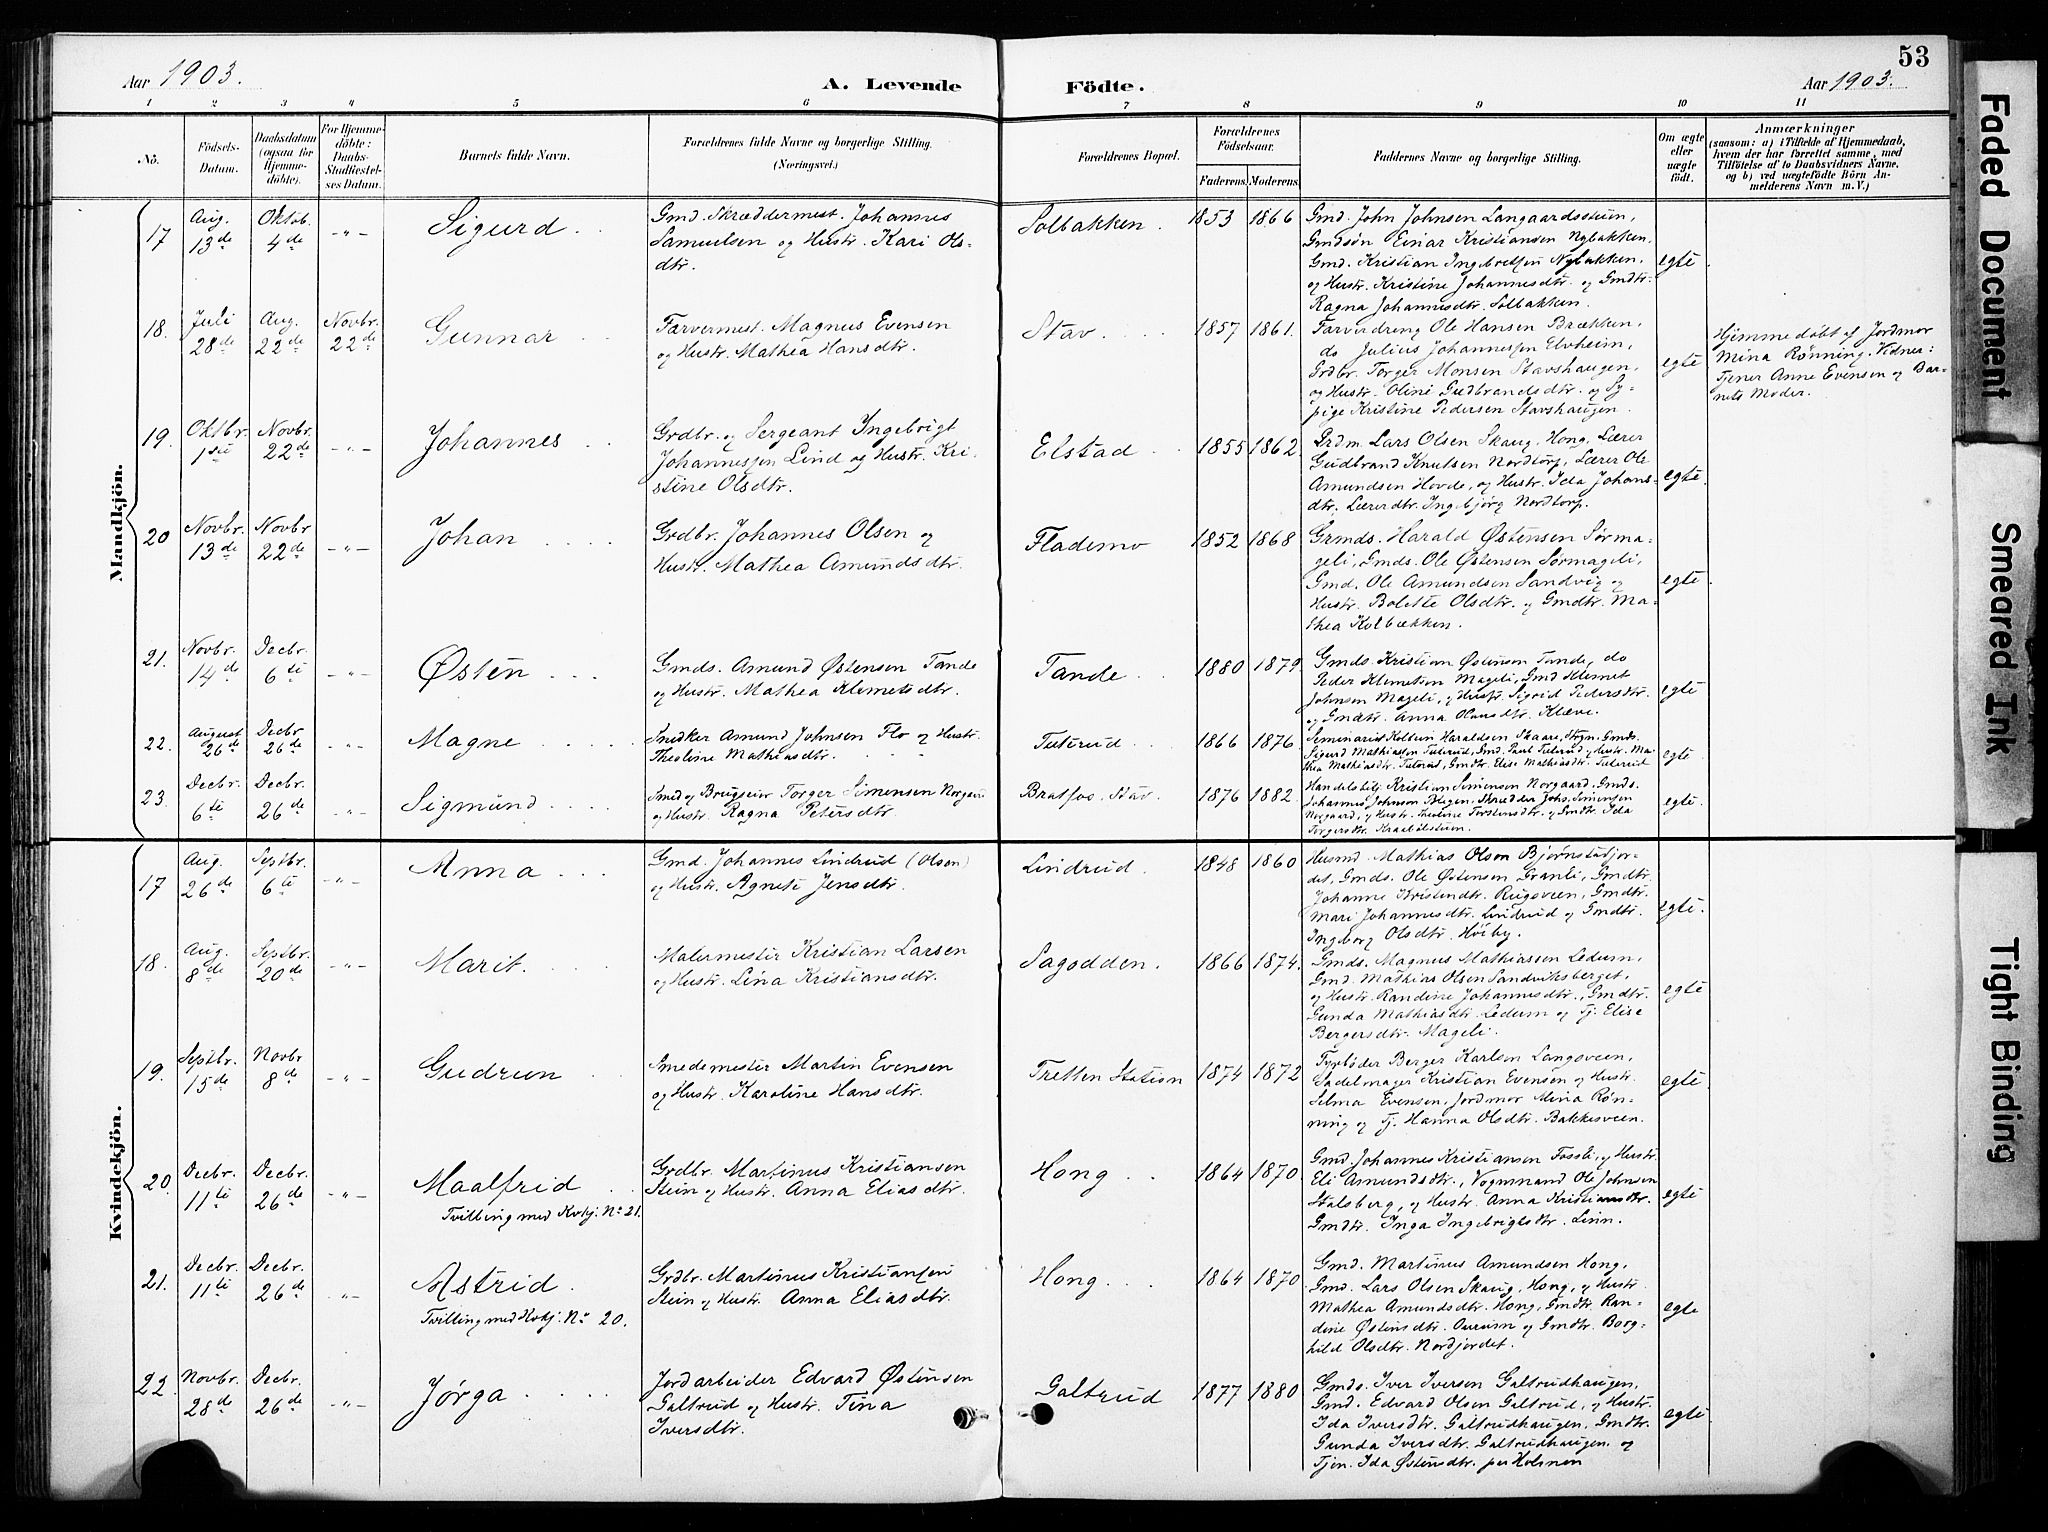 53
Aar 1903.
A. Levende
Födte.
Aar 1903.
1 2 3 4 5 6 7 8 9 10 11
No.
Födsels-
Datum.
Daabsdatum
(ogsaa for
Hjemme-
döbte).
For Hjemme-
döbte:
Daabs-
Stadfæstel-
ses Datum.
Barnets fulde Navn.
Forældrenes fulde Navne og borgerlige Stilling.
(Næringsvei.)
Forældrenes Bopæl.
Forældrenes
Födselsaar.
Faderens. Moderens.
Faddernes Navne og borgerlige Stilling.
Om ægte
eller
uægte
födt.
Anmærkninger
(saasom: a) i Tilfælde af Hjemmedaab,
hvem der har forrettet samme, med
Tilföielse af to Daabsvidners Navne,
og b) ved uægtefödte Börn An-
melderens Navn m. V.)
Mandkjön.
17
Aug.
13de
Oktob.
4de
-"-
Sigurd
Gmd. Skræddermest. Johannes
Samuelsen og Hustr. Kari Ols-
dtr.
Solbakken
1853 1866
Gmd. John Johnsen Langaardsstuen,
Gmdsøn Einar Kristiansen Nybakken,
Gmd. Kristian Ingebretsen Nybakken,
og Hustr. Kristine Johannesdtr. og Gmdtr.
Ragna Johannesdtr. Solbakken.
egte
18.
Juli
28de
Aug.
22de
Novbr.
22de
Gunnar
Farvermest. Magnus Evensen
og Hustr. Mathea Hansdtr.
Stav
1857 1861.
Farverdreng Ole Hansen Brækken,
do Julius Johannessen Elvheim,
Grdbr. Torger Monsen Stavshaugen,
og Hustr. Oline Gudbrandsdtr. og Sy-
pige Kristine Pedersen Stavshaugen.
egte
Hjemmedøbt af Jordmor
Mina Rønning. Vidner:
Tjener Anne Evensen og Bar-
nets Moder.
19.
Oktbr.
1ste
Novbr.
22de
-"-
Johannes
Grdbr. og Sergeant Ingebrigt
Johannessen Lind og Hustr. Kri-
stine Olsdtr.
Elstad
1855 1862.
Grdm. Lars Olsen Skaug, Hong, Lærer
Gudbrand Knutsen Nordtorp, Lærer Ole
Amundsen Hovde, og Hustr. Ida Johans-
dtr. Lærerdtr. Ingebjørg Nordtorp.
egte
20
Novbr.
13de
Novbr
22de
-"-
Johan
Grdbr. Johannes Olsen og
Hustr. Mathea Amundsdtr.
Flademo
1852 1868
Grmds. Harald Østensen Sørma-
geli, Gmds. Ole Østensen Sørmageli,
Gmd. Ole Amundsen Sandvig og
Hustr. Bolette Olsdtr. og Gmdtr. Ma-
thea Kolbækken.
egte
21.
Novbr.
14de
Decbr.
6te
-"-
Østen
Gmds. Amund Østensen Tande
og Hustr. Mathea Klemetsdtr.
Tande
1880 1879
Gmds. Kristian Østensen Tande, do
Peder Klemetsen Mageli, Gmd Klemet
Johnsen Mageli, og Hustr. Sigrid Pedersdtr.
og Gmdtr. Anna Olausdtr. Kleve.
egte
22.
August
26de
Decbr.
26de
-"-
Magne
Snedker Amund Johnsen Flo og Hustr.
Theoline Mathiasdtr.
Tuterud
1866 1876.
Seminarist Kolbein Haraldsen Skaar, Gmds.
Sigurd Mathiassen Tuterud, Gmd. Paul Tuterud og Hustr. Ma-
thea Mathiasdtr. Tuterud, Gmdtr. Elise Mathiasdtr. Tuterud
egte
23.
Decbr.
6te
Decbr.
26de
-"-
Sigmund
Smed og Brugseier Torger Simensen Norgaard
og Hustr. Ragna Petersdtr.
Bratfos, Stav.
1876 1882.
Handelsbetj. Kristian Simensen Norgaard, Gmds.
Johannes Johnson Blegen, Skrædder Johs. Simensen
Norgaard, og Hustr. Pauline Torstensdtr. og Gmdtr. Ida
Torgersdtr. Kraabølstuen.
egte
Kvindekjön.
17
Aug.
26de
Septbr.
6te
-"-
Anna
Gmd. Johannes Lindrud (Olson)
og Hustr. Agnete Jensdtr.
Lindrud
1848 1860
Husmd. Mathias Olson Bjørnstadjor-
det, Gmds. Ole Østensen Granli, Gmdtr.
Johanne Kristendtr. Rugsveen, Gmdtr.
Mari Johannesdtr. Lindrud og Gmdtr.
Ingeborg Olsdtr. Høiby.
egte.
18.
Aug.
8de
Septbr.
20de
-"-
Marit.
Malermester Kristian Larsen
og Hustr. Lina Kristiansdtr.
Sagodden.
1866 1874.
Gmds. Magnus Mathiassen Ledum,
Gmd. Mathias Olsen Sandviksberget,
og Hustr. Randine Johannesdtr., Gmdtr.
Gunda Mathiasdtr. Ledum og Tj. Elise
Bergersdtr. Mageli.
egte
19.
Septbr.
15de
Novbr
8de
-"-
Gudrun
Smedemester Martin Evensen
og Hustr. Karoline Hansdtr.
Tretten Station
1874 1872
Fyrbøder Berger Karlsen Langsveen,
Sadelmager Kristian Evensen og Hustr.
Selma Evensen, Jordmor Mina Røn-
ning og Tj. Hanna Olsdtr. Bakkesveen.
egte
20.
Decbr.
11te
Decbr.
26de
-"-
Maalfrid
Tvilling med Kvkj. No 21.
Grdbr. Martinus Kristiansen
Stein og Hustr. Anna Eliasdtr.
Hong
1864 1870
Gmd. Johannes Kristiansen Fossli, og Hustr.
Eli Amundsdtr., Vognmand Ole Johnsen
Stalsberg, og Hustr. Anna Kristiansdtr.
Gmdtr. Inga Ingebrigtsdtr. Linn.
egte
21.
Decbr.
11te
Decbr.
26de
-"-
Astrid
Tvilling med Kvkj. No 20.
Grdbr. Martinus Kristiansen
Stein og Hustr. Anna Eliasdtr.
Hong.
1864 1870
Gmd. Martinus Amundsen Hong,
Gmd. Lars Olsen Skaug, Hong, og Hustr.
Mathea Amundsdtr. Hong, Gmdtr. Ran-
dine Østensdtr. Ourum og Gmdtr. Borg-
hild Olsdtr. Nordjordet.
egte
22.
Novbr.
28de
Decbr.
26de
-"-
Jørga
Jordarbeider Edvard Østensen
Galtrud og Hustr. Tina
Iversdtr.
Galtrud
1877 1880
Gmds. Iver Iversen Galtrudhaugen,
Gmd. Edvard Olsen Galtrud, og Hustr.
Ida Iversdtr. Galtrudhaugen, Gmdtr.
Gunda Iversdtr. Galtrudhaugen, og
Tjen. Ida Østensdtr. per Holmen
egte
Faded Document
Smeared Ink
Tight Binding